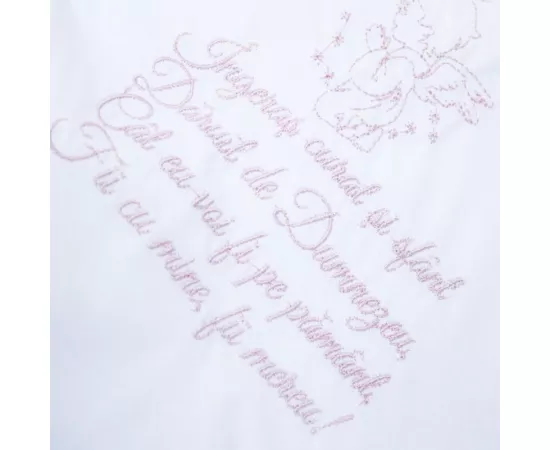 Îngeraș curat și sfânt
Dăruit de Dumnezeu,
Cât eu voi fi pe pământ,
Fii cu mine, fii mereu!